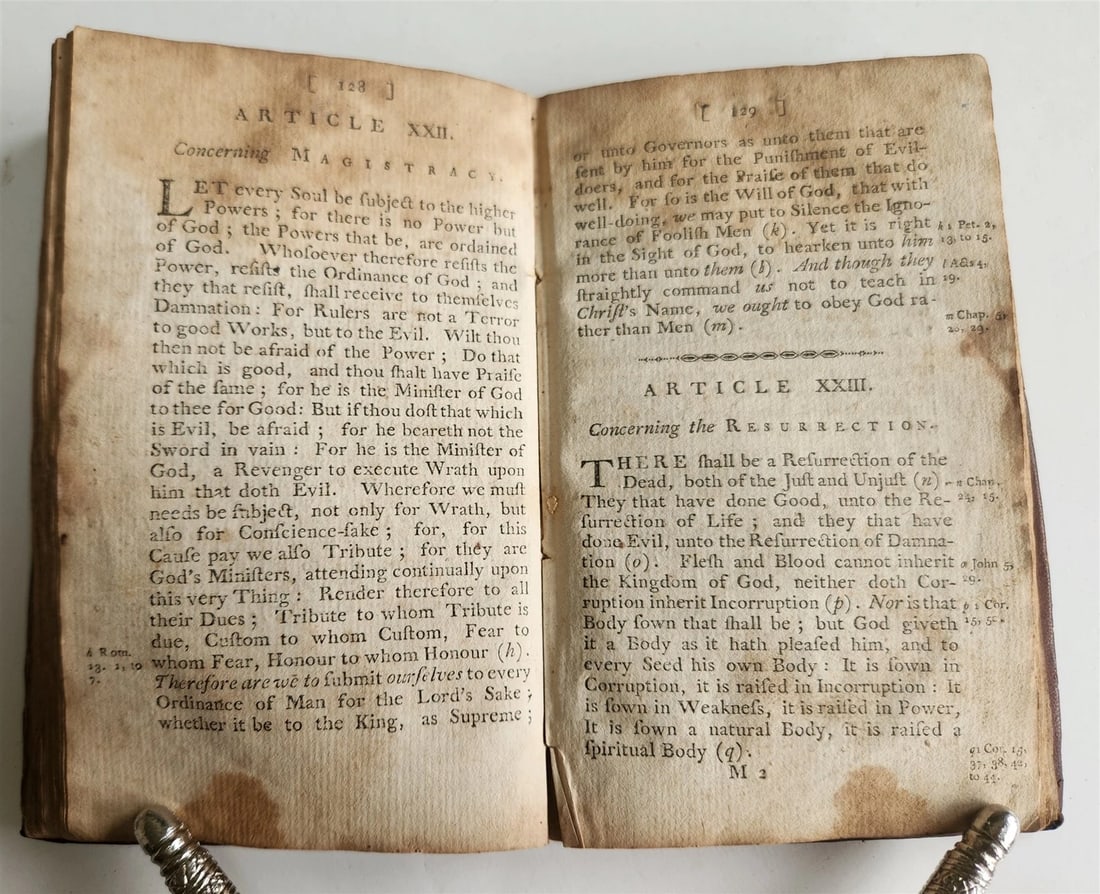 [ 128 ]
ARTICLE XXII.
Concerning MAGISTRACY.
LET every Soul be ſubject to the higher
Powers; for there is no Power but
of God; the Powers that be, are ordained
of God. Whoſoever therefore reſiſts the
Power, reſiſts the Ordinance of God; and
they that reſiſt, ſhall receive to themſelves
Damnation: For Rulers are not a Terror
to good Works, but to the Evil. Wilt thou
then not be afraid of the Power; Do that
which is good, and thou ſhalt have Praiſe
of the ſame; for he is the Miniſter of God
to thee for Good: But if thou doſt that which
is Evil, be afraid; for he beareth not the
Sword in vain: For he is the Miniſter of
God, a Revenger to execute Wrath upon
him that doth Evil. Wherefore we muſt
needs be ſubject, not only for Wrath, but
alſo for Conſcience-ſake; for, for this
Cauſe pay we alſo Tribute; for they are
God's Miniſters, attending continually upon
this very Thing: Render therefore to all
their Dues; Tribute to whom Tribute is
due, Cuſtom to whom Cuſtom, Fear to
whom Fear, Honour to whom Honour (h).
Therefore are we to ſubmit ourſelves to every
Ordinance of Man for the Lord's Sake;
whether it be to the King, as Supreme;
h Rom.
13. 1, to
7.
[ 129 ]
or unto Governors as unto them that are
ſent by him for the Puniſhment of Evil-
doers, and for the Praiſe of them that do
well. For ſo is the Will of God, that with
well-doing, we may put to Silence the Igno-
rance of Fooliſh Men (k). Yet it is right
in the Sight of God, to hearken unto him
more than unto them (l). And though they
ſtraightly command us not to teach in
Chriſt's Name, we ought to obey God ra-
ther than Men (m).
k 1 Pet. 2,
13, to 15.
l Acts 4,
19.
m Chap. 5,
20, 29.
ARTICLE XXIII.
Concerning the RESURRECTION.
THERE ſhall be a Reſurrection of the
Dead, both of the Juſt and Unjuſt (n)
They that have done Good, unto the Re-
ſurrection of Life; and they that have
done Evil, unto the Reſurrection of Damna-
tion (o). Fleſh and Blood cannot inherit
the Kingdom of God, neither doth Cor-
ruption inherit Incorruption (p). Nor is that
Body ſown that ſhall be; but God giveth
it a Body as it hath pleaſed him, and to
every Seed his own Body: It is ſown in
Corruption, it is raiſed in Incorruption: It
is ſown in Weakneſs, it is raiſed in Power,
It is ſown a natural Body, it is raiſed a
ſpiritual Body (q).
n Chap.
24, 15.
o John 5,
29.
p 1 Cor.
15, 50.
q 1 Cor. 15,
37, 38, 42,
to 44.
M 2